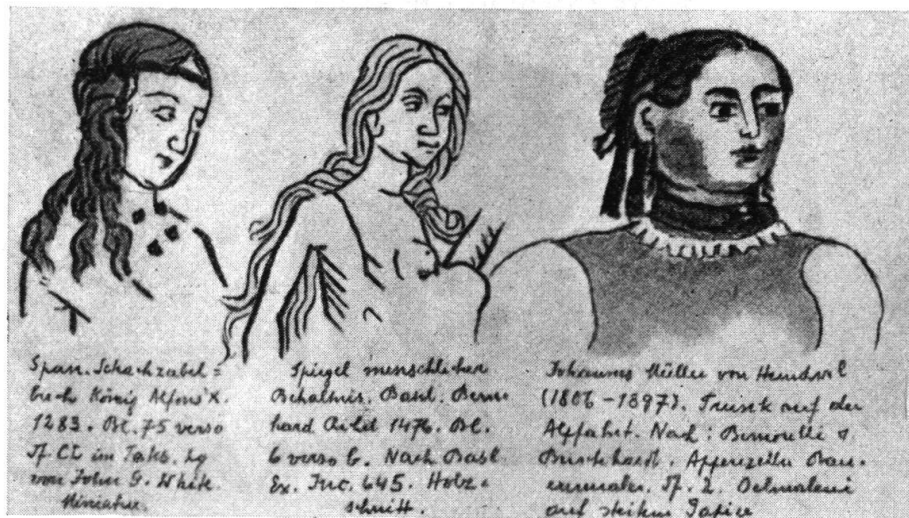 Span. Schachzabel=
buch König Alfons' X.
1283. Bl. 75 verso
Tf CL im Taks. hg
von John G. White.
Miniatur.
Spiegel menschlicher
Behaltnis. Basel. Bern=
hard Richel 1476. Bl.
6 verso b. Nach Basl
Ex. Inc. 645. Holz=
schnitt.
Johannes Müller von Hundwil
(1806-1897). Trunk auf der
Alpfahrt. Nach:
Burckhardt. Appenzeller Bau-
ernmaler. Tf. 2. Oelmalerei
auf